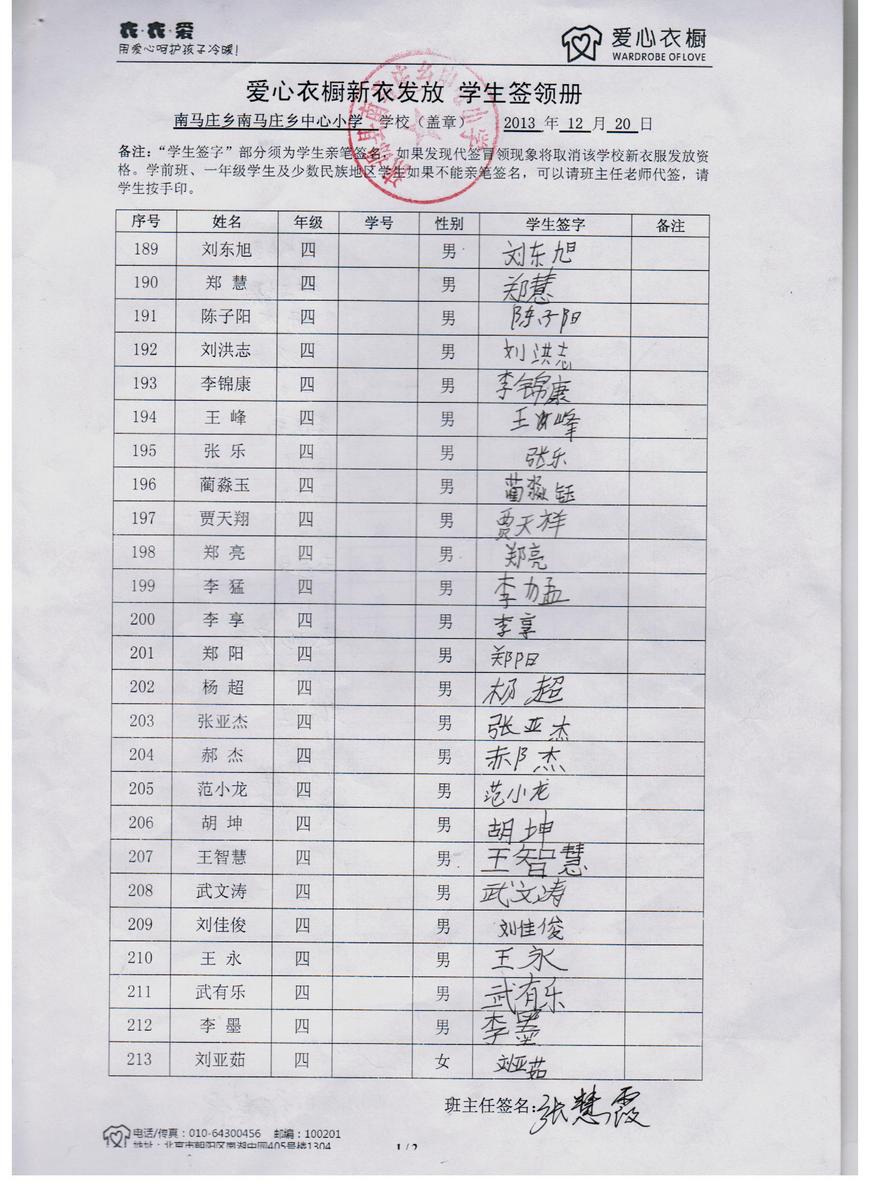 衣·衣·爱
用爱心呵护孩子冷暖!
爱心衣橱
WARDROBE OF LOVE
爱心衣橱新衣发放 学生签领册
南马庄乡南马庄乡中心小学 学校（盖章） 2013 年 12 月 20 日
备注：“学生签字”部分须为学生亲笔签名，如果发现代签冒领现象将取消该学校新衣服发放资
格。学前班、一年级学生及少数民族地区学生如果不能亲笔签名，可以请班主任老师代签，请
学生按手印。
序号 姓名 年级 学号 性别 学生签字 备注
189 刘东旭 四 男 刘东旭
190 郑 慧 四 男 郑慧
191 陈子阳 四 男 陈子阳
192 刘洪志 四 男 刘洪志
193 李锦康 四 男 李锦康
194 王 峰 四 男 王 峰
195 张 乐 四 男 张乐
196 蔺淼玉 四 男 蔺淼钰
197 贾天翔 四 男 贾天祥
198 郑 亮 四 男 郑亮
199 李 猛 四 男 李
200 李 享 四 男 李享
201 郑 阳 四 男 郑阳
202 杨 超 四 男 杨超
203 张亚杰 四 男 张亚杰
204 郝 杰 四 男 郝杰
205 范小龙 四 男 范小龙
206 胡 坤 四 男 胡坤
207 王智慧 四 男 王智慧
208 武文涛 四 男 武文涛
209 刘佳俊 四 男 刘佳俊
210 王 永 四 男 王永
211 武有乐 四 男 武有乐
212 李 墨 四 男 李墨
213 刘亚茹 四 女 刘亚茹
班主任签名:张慧霞
电话/传真：010-64300456 邮编：100201
地址：北京市朝阳区南湖中园405号楼1304
1 / 2